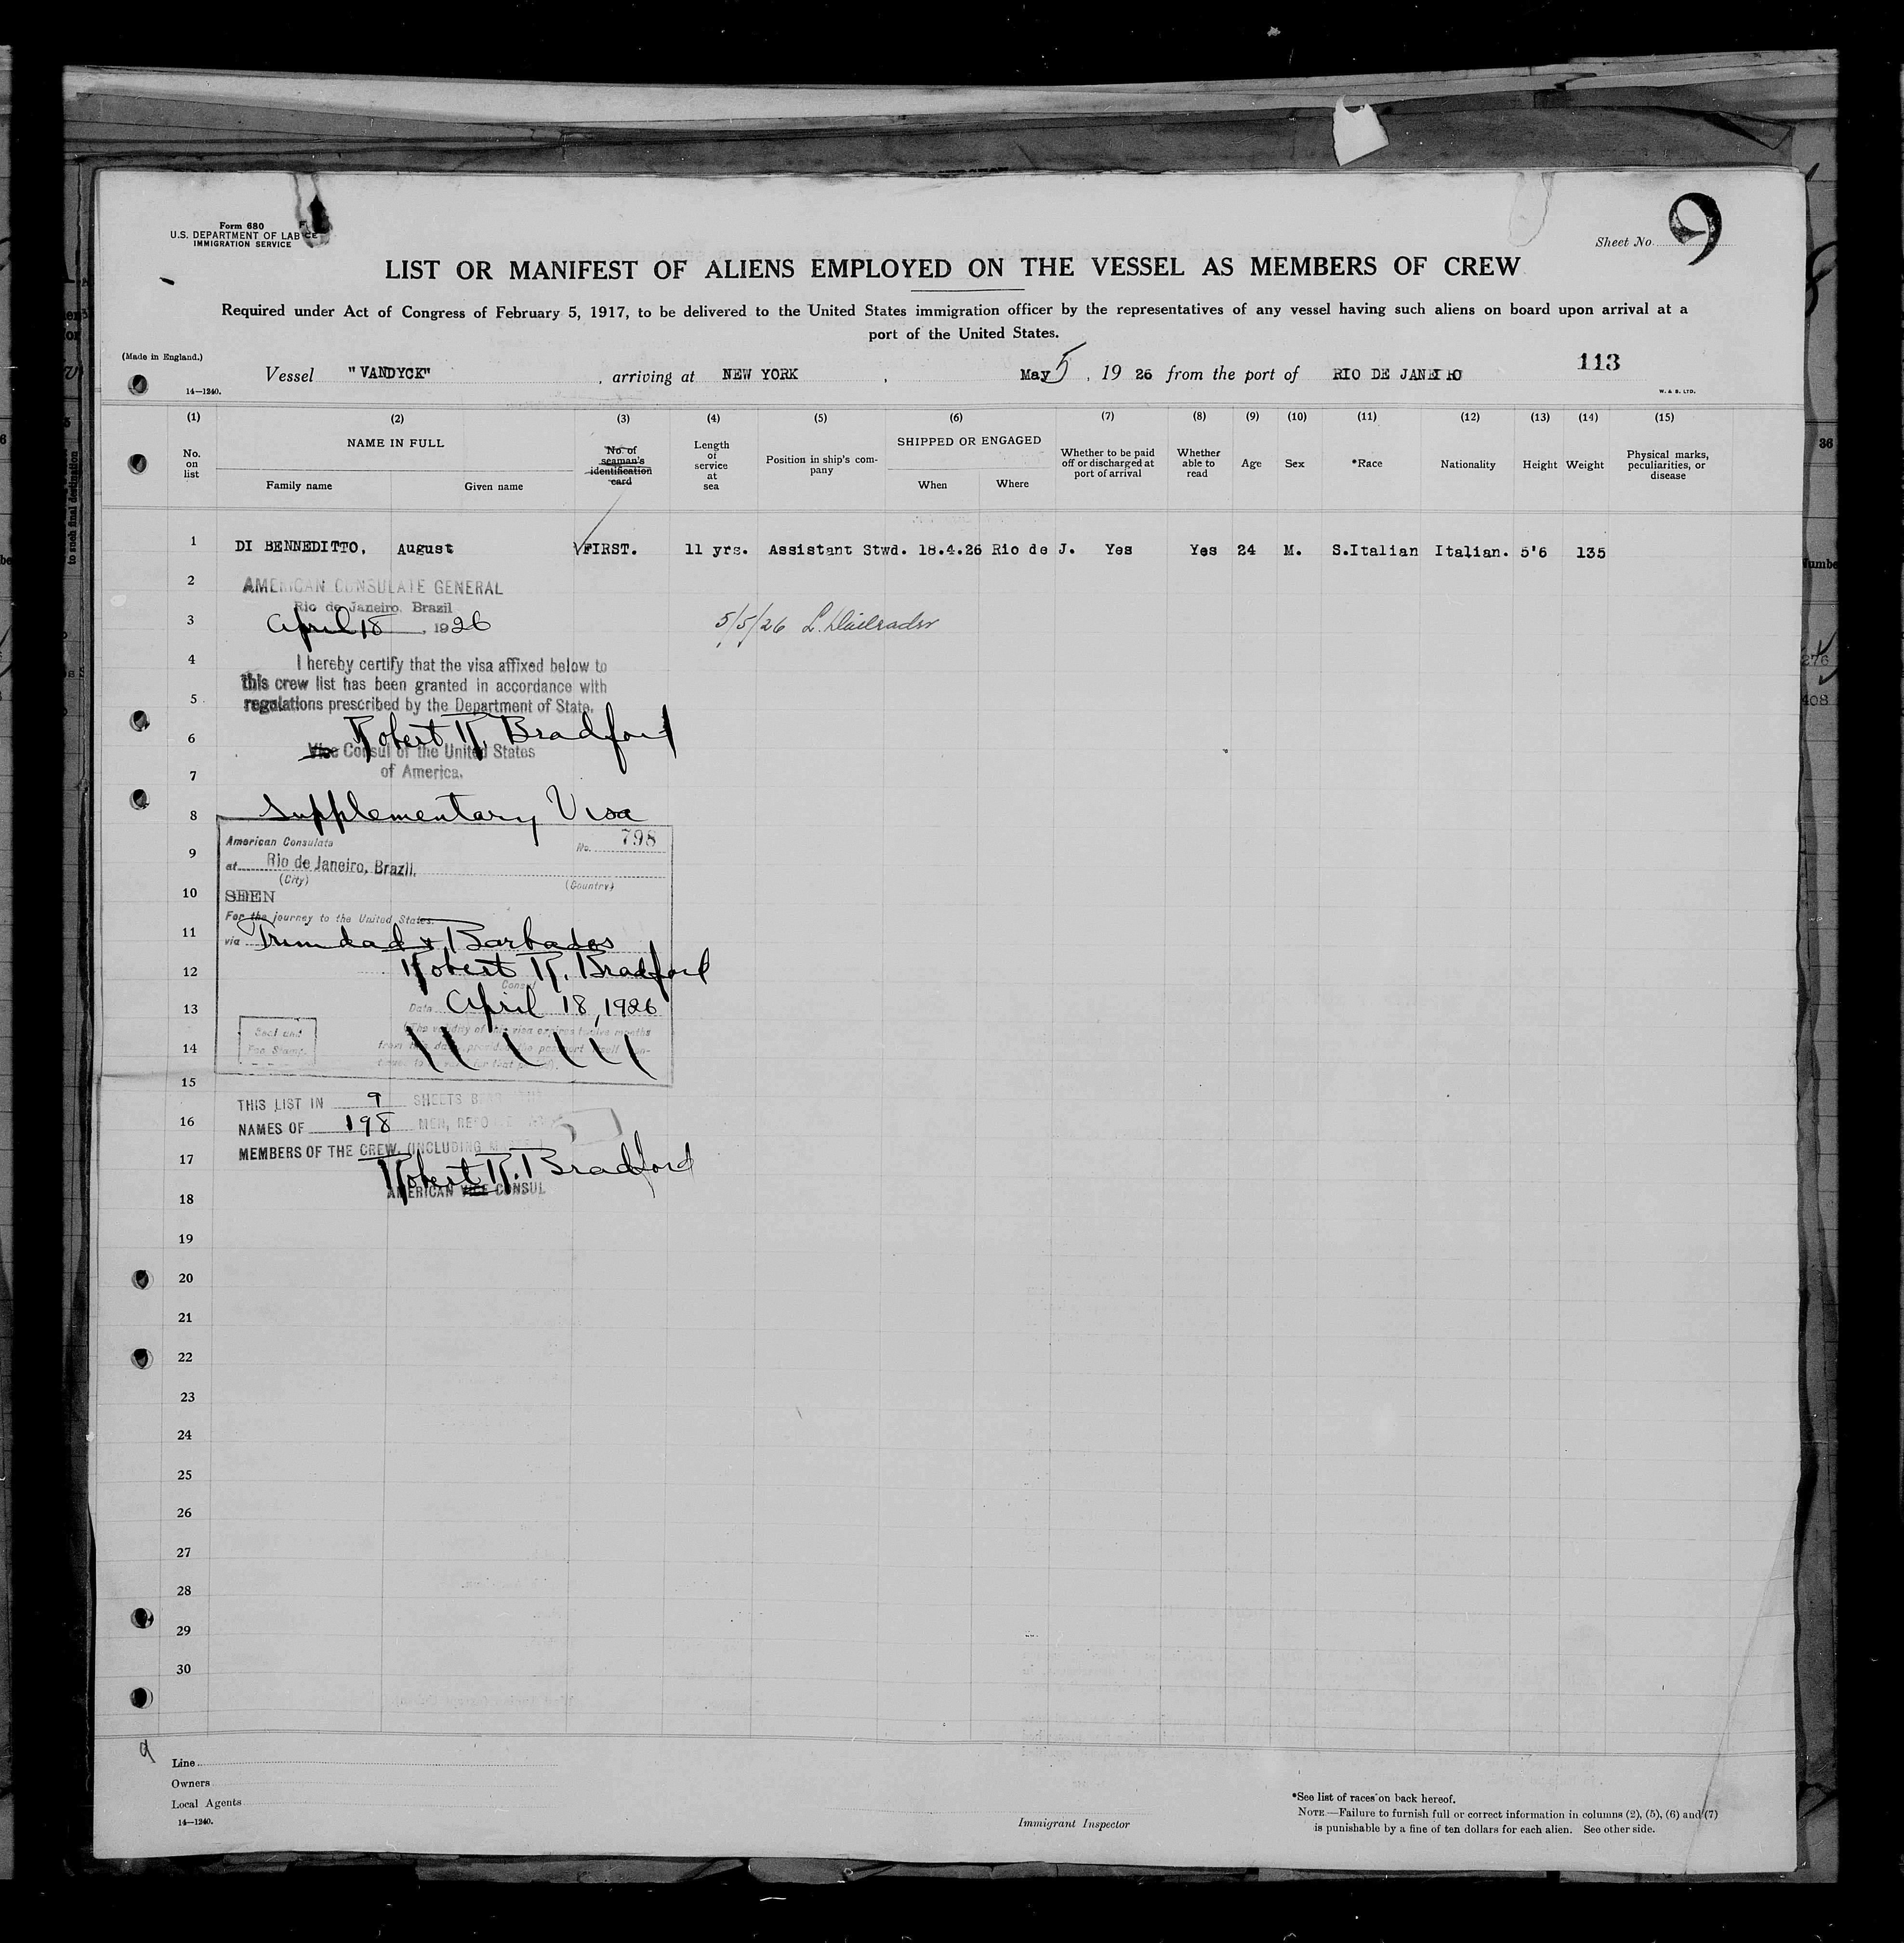 Form 680
U.S. DEPARTMENT OF LAB
IMMIGRATION SERVICE
Sheet No. 9
LIST OR MANIFEST OF ALIENS EMPLOYED ON THE VESSEL AS MEMBERS OF CREW
Required under Act of Congress of February 5, 1917, to be delivered to the United States immigration officer by the representatives of any vessel having such aliens on board upon arrival at a
port of the United States.
(Made in England.)
113
Vessel "VANDYCK", arriving at NEW YORK, May 5, 19 26 from the port of RIO DE JANEIRO
14—1240.
W. & S. LTD.
(1) (2) (3) (4) (5) (6) (7) (8) (9) (10) (11) (12) (13) (14) (15)
No. on list
NAME IN FULL
Family name Given name
No. of seaman's identification card
Length of service at sea
Position in ship's company
SHIPPED OR ENGAGED
When Where
Whether to be paid off or discharged at port of arrival
Whether able to read
Age
Sex
*Race
Nationality
Height
Weight
Physical marks, peculiarities, or disease
1 DI BENNEDITTO, August FIRST. 11 yrs. Assistant Stwd. 18.4.26 Rio de J. Yes Yes 24 M. S.Italian Italian. 5'6 135
2 AMERICAN CONSULATE GENERAL
Rio de Janeiro, Brazil
3 April 18, 1926
5/5/26 L.
4 I hereby certify that the visa affixed below to
this crew list has been granted in accordance with
5 regulations prescribed by the Department of State.
6 Robert R. Bradford
Vice Consul of the United States
7 of America.
8 Supplementary Visa
American Consulate No. 798
9 at Rio de Janeiro, Brazil.
(City) (Country)
10 SEEN
For the journey to the United States.
11 via Trinidad & Barbados
12 Robert R. Bradford
Consul
13 Date April 18, 1926
(The validity of this visa expires twelve months
14 Seal and Fee Stamp.
15
THIS LIST IN 9 SHEETS
16 NAMES OF 198 MEN,
17 MEMBERS OF THE CREW, (INCLUDING
Robert R. Bradford
18 AMERICAN VICE CONSUL
19
20
21
22
23
24
25
26
27
28
29
30
9
Line
Owners
Local Agents
14—1240.
Immigrant Inspector
*See list of races on back hereof.
NOTE.—Failure to furnish full or correct information in columns (2), (5), (6) and (7)
is punishable by a fine of ten dollars for each alien. See other side.